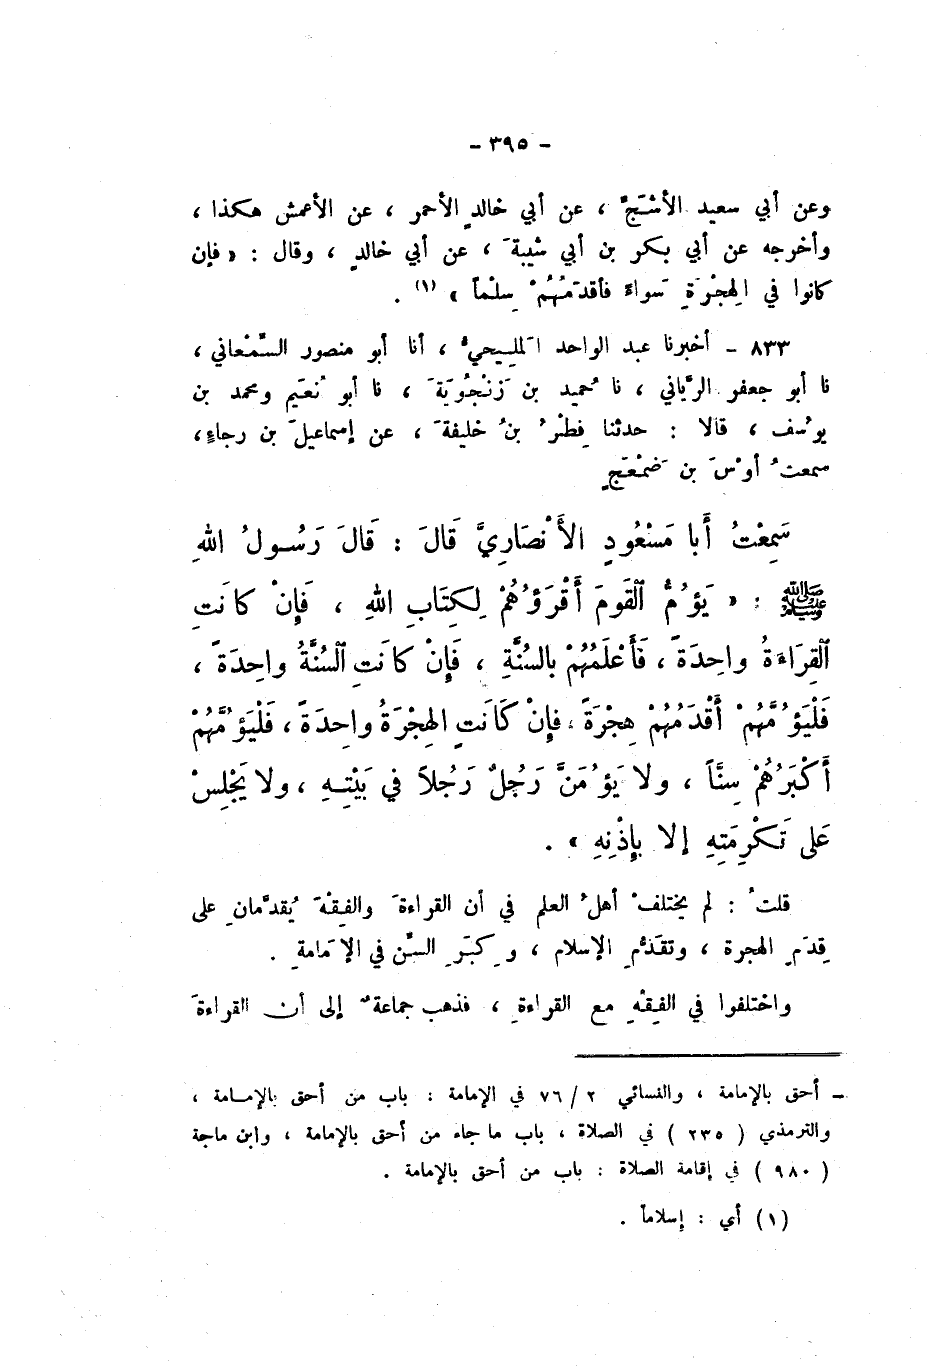 - ٣٩٥ -
وعن أبي سعيد الأشجِّ ، عن أبي خالدٍ الأحمر ، عن الأعمش هكذا ،
وأخرجه عن أبي بكر بن أبي شيبةَ ، عن أبي خالدٍ ، وقال : « فإن
كانوا في الهِجْرَةِ سَواءً فأقدَمُهُمْ سِلْماً » (١) .
٨٣٣ - أخبرنا عبد الواحد المَلِيحيُّ ، أنا أبو منصور السَّمْعاني ،
نا أبو جعفر الرَّياني ، نا حُميد بن زَنْجُويَةَ ، نا أبو نُعَيم ومحمد بن
يوسُف ، قالا : حدثنا فِطْرُ بنُ خليفةَ ، عن إسماعيلَ بن رجاءٍ،
سمعتُ أوْسَ بن ضَمْعَجٍ
سَمِعْتُ أَبا مَسْعُودٍ الأَنْصَارِيَّ قَالَ : قَالَ رَسُولُ اللهِ
ﷺ : « يَؤُمُّ ٱلْقَومَ أَقْرَؤُهُمْ لِكِتَابِ اللهِ ، فَإِنْ كانَتِ
ٱلْقِرَاءَةُ واحِدَةً ، فَأَعْلَمُهُمْ بالسُنَّةِ ، فَإِنْ كانَتِ ٱلسُنَّةُ واحِدَةً ،
فَلْيَؤُمَّهُمْ أَقْدَمُهُمْ هِجْرَةً ، فإِنْ كَانَتِ الهِجْرَةُ واحِدَةً ، فَلْيَؤُمَّهُمْ
أَكْبَرُهُمْ سِنَّاً ، ولا يَؤُمَنَّ رَجُلٌ رَجُلاً في بَيْتِهِ ، ولا يَجْلِسْ
عَلى تَكْرِمَتِهِ إلا بِإِذْنِهِ » .
قلتُ : لم يختلفْ أهلُ العلم في أن القراءةَ والفِقْهَ يُقدَّمانِ على
قِدَمِ الهجرة ، وتقَدُّمِ الإسلام ، وكِبَرِ السِّن في الإمَامةِ .
واختلفوا في الفِقْهِ مع القراءةِ ، فذهب جماعةٌ إلى أن القراءةَ
- أحق بالإمامة ، والنسائي ٢ / ٧٦ في الإمامة : باب من أحق بالإمامة ،
والترمذي ( ٢٣٥ ) في الصلاة ، باب ما جاء من أحق بالإمامة ، وابن ماجة
( ٩٨٠ ) في إقامة الصلاة : باب من أحق بالإمامة .
(١) أي : إسلاماً .